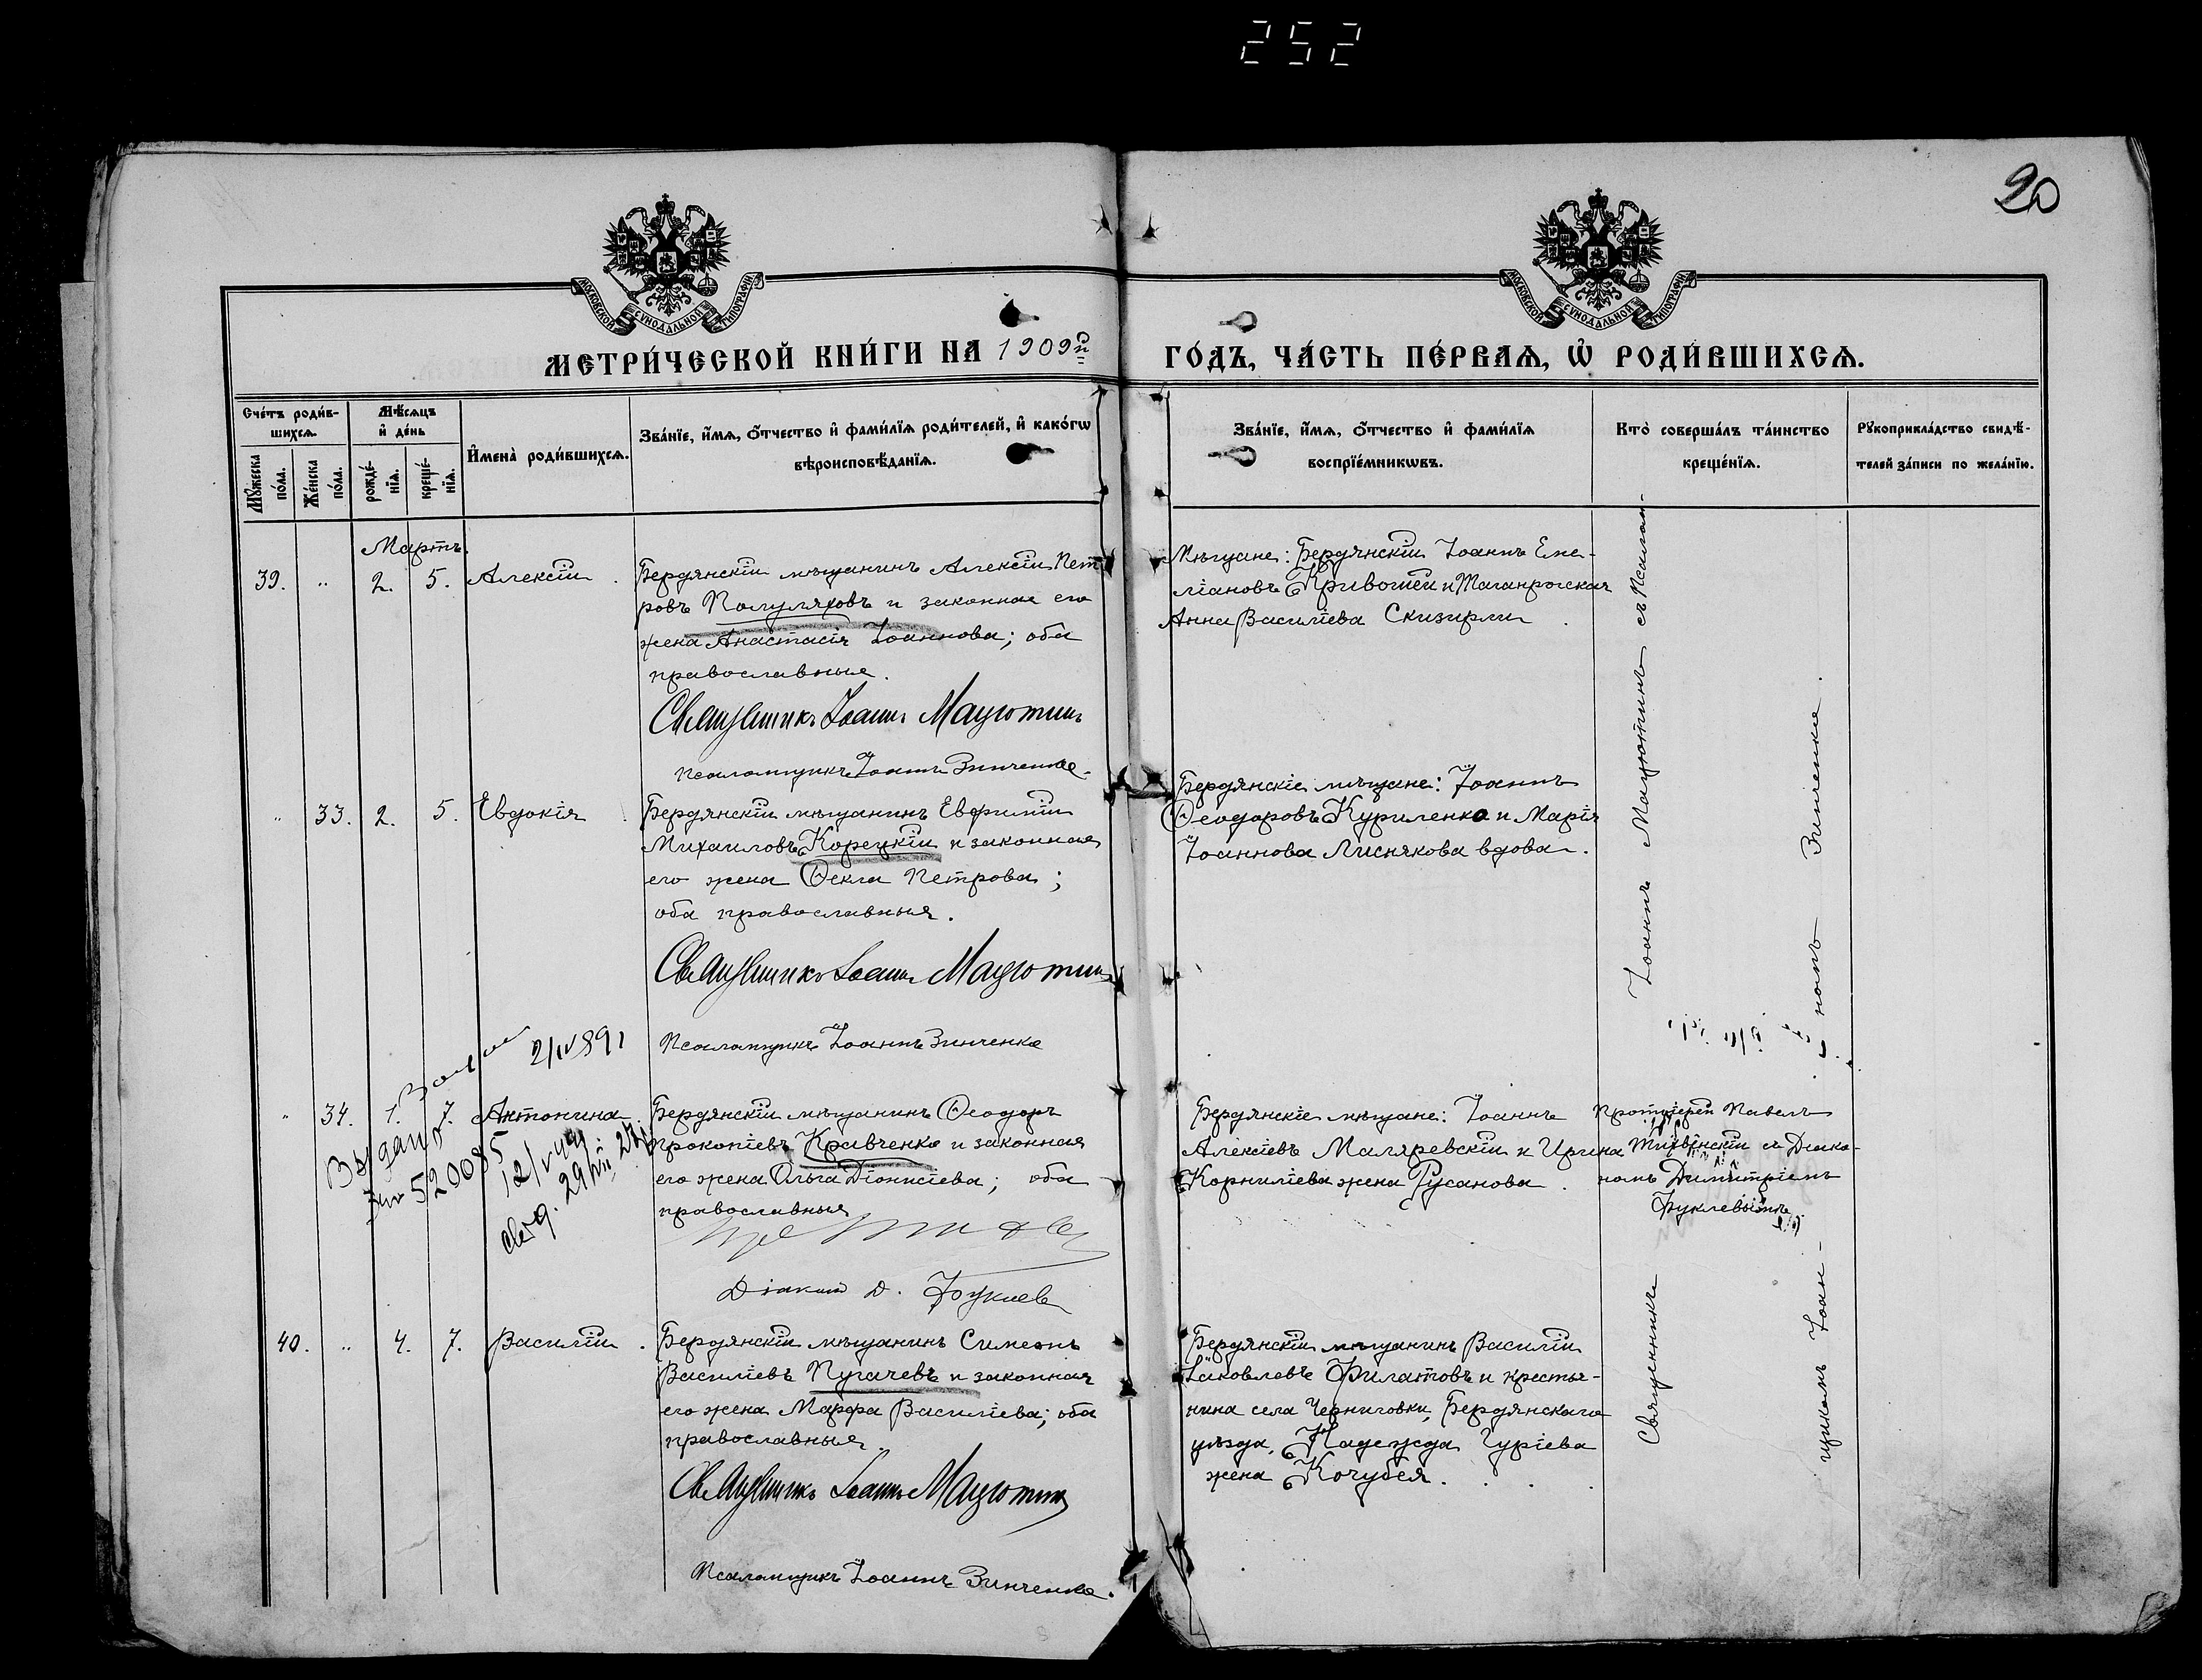 252
20
МОСКОВСКОЙ СѴНОДАЛЬНОЙ ТИПОГРАФІИ
МОСКОВСКОЙ СѴНОДАЛЬНОЙ ТИПОГРАФІИ
МЕТРИ́ЧЕСКОЙ КНИ́ГИ НА 1909й ГО́ДЪ, ЧА́СТЬ ПЕ́РВАѦ, Ѡ҆ РОДИ́ВШИХСѦ.
Сче́тъ роди́в-
шихсѧ.
Мѣ́сѧцъ
и҆ де́нь
Мꙋ́жеска
по́ла.
Же́нска
по́ла.
рожде́-
нїѧ.
креще́-
нїѧ.
И҆мена̀ роди́вшихсѧ.
Зва́нїе, и҆́мѧ, ѻ҆́тчество и҆ фами́лїѧ роди́телей, и҆ како́гѡ
вѣроисповѣ́данїѧ.
Зва́нїе, и҆́мѧ, ѻ҆́тчество и҆ фами́лїѧ
воспрїе́мникѡвъ.
Кто̀ соверша́лъ та́инство
креще́нїѧ.
Рꙋкоприкла́дство свидѣ́-
телей за́писи по жела́нїю.
Мартъ.
39. " 2. 5. Алексій.
Бердянскій мѣщанинъ Алексій Пет
ровъ Полуляховъ и законная его
жена Анастасія Іоаннова; оба
православные.
Священникъ Іоаннъ Мацютинъ
Псаломщикъ Іоаннъ Зинченко.
Мѣщане: Бердянскій Іоаннъ Еме-
ліановъ Кривошеи и Таганрогская
Анна Василіева Скизирли.
" 33. 2. 5. Евдокія.
Бердянскій мѣщанинъ Евфимій
Михаиловъ Корецкій и законная
его жена Ѳекла Петрова;
оба православныя.
Священникъ Іоаннъ Мацютинъ
Псаломщикъ Іоаннъ Зинченко
Бердянскіе мѣщане: Іоаннъ
Ѳеодоровъ Куриленко и Марія
Іоаннова Лиснякова вдова.
2/IV 891
" 34. 1. 7. Антонина.
Выдано
520085
12/V
29/VII
Бердянскій мѣщанинъ Ѳеодоръ
Прокопіевъ Кравченко и законная
его жена Ольга Діонисіева; оба
православныя
Діаконъ Д. Фуклев
Бердянскіе мѣщане: Іоаннъ
Алексіевъ Маляревскій и Ирина
Корниліева жена Русанова.
Протоіерей Павелъ
Тихвинскій съ Діако-
номъ Димитріемъ
Фуклевымъ
40. " 4. 7. Василій.
Бердянскій мѣщанинъ Симеонъ
Василіевъ Пугачевъ и законная
его жена Марфа Василіева; оба
православныя.
Священникъ Іоаннъ Мацютинъ
Псаломщикъ Іоаннъ Зинченко.
Бердянскій мѣщанинъ Василій
Іаковлевъ Филатовъ и крестья-
нина села Черниговки, Бердянскаго
уѣзда, Надежда Гуріева
жена Кочубея.
Священникъ Іоаннъ Мацютинъ съ Псалом-
щикомъ Іоан-
номъ Зинченко.